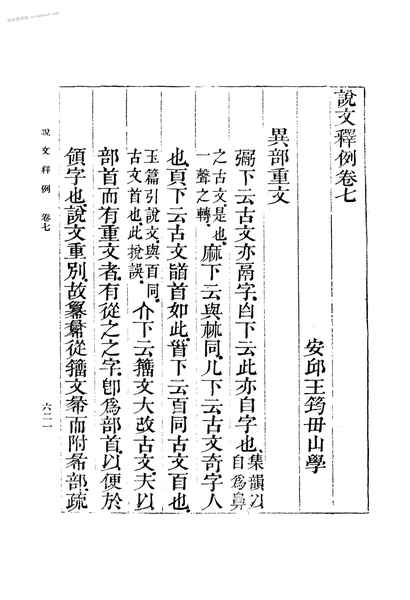 說文釋例卷七
安邱王筠毌山學
異部重文
䰜下云古文亦鬲字。白下云此亦自字也。集韻以自爲鼻
之古文。是也。一聲之轉。麻下云與𣏟同。儿下云古文奇字人
也。頁下云古文䭫首如此。𦣻下云百同古文百也。
玉篇引說文。與百同。古文首也。此挩誤。亣下云籒文大改古文。夫以
部首而有重文者。有從之之字。卽爲部首。以便於
領字也。說文重別。故從籒文㣇而附㣇部。疏
說文釋例 卷七
六二一